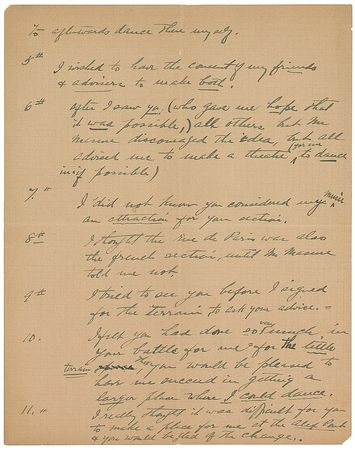 To afterwards dance there myself.
5th
I wished to have the consent of my friends
& advisers to make both.
6th after I saw you, (who gave me hope that
it was possible,) all others but Mr
Masure discouraged the idea, but all
advised me to make a theatre (for me to dance
in if possible)
7th
I did not know you considered my music
an attraction for your section.
8th I thought the rue de Paris was also
the french section, until Mr Masure
told me not.
9th I tried to see you before I signed
for the terrain to ask your advice. =
10. I felt you had done so very much in
your battle for me & for the little
terrain you would be pleased to
have me succeed in getting a
larger place where I could dance.
11, " I really thought it was difficult for you
to make a place for me at the
& you would be glad of the change.